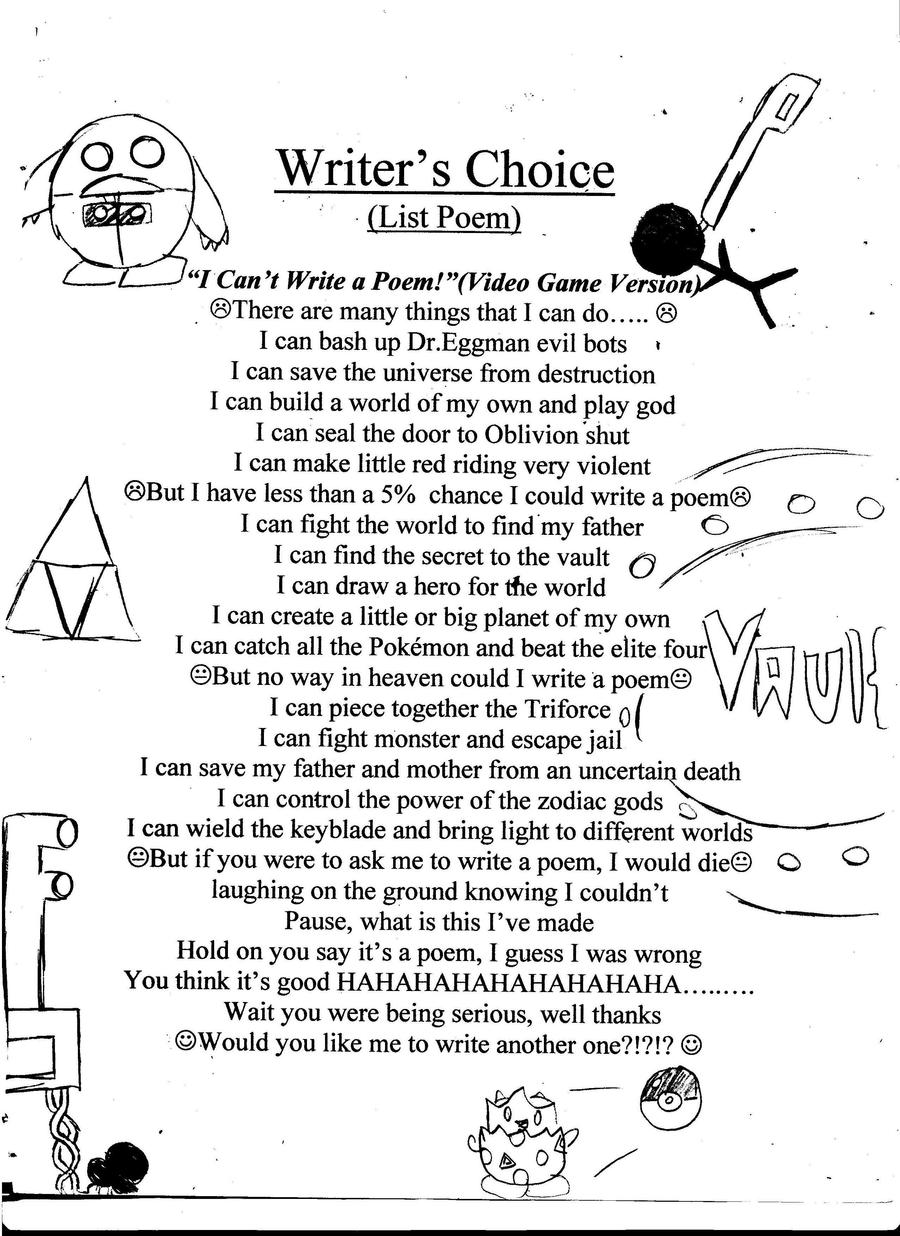 Writer's Choice
(List Poem)
"I Can't Write a Poem!"(Video Game Version)
☹There are many things that I can do….. ☹
I can bash up Dr.Eggman evil bots
I can save the universe from destruction
I can build a world of my own and play god
I can seal the door to Oblivion shut
I can make little red riding very violent
☹But I have less than a 5% chance I could write a poem☹
I can fight the world to find my father
I can find the secret to the vault
I can draw a hero for the world
I can create a little or big planet of my own
I can catch all the Pokémon and beat the elite four
😐But no way in heaven could I write a poem😐
I can piece together the Triforce
I can fight monster and escape jail
I can save my father and mother from an uncertain death
I can control the power of the zodiac gods
I can wield the keyblade and bring light to different worlds
😐But if you were to ask me to write a poem, I would die😐
laughing on the ground knowing I couldn't
Pause, what is this I've made
Hold on you say it's a poem, I guess I was wrong
You think it's good HAHAHAHAHAHAHAHAHA….…..
Wait you were being serious, well thanks
☺Would you like me to write another one?!?!? ☺
Vault